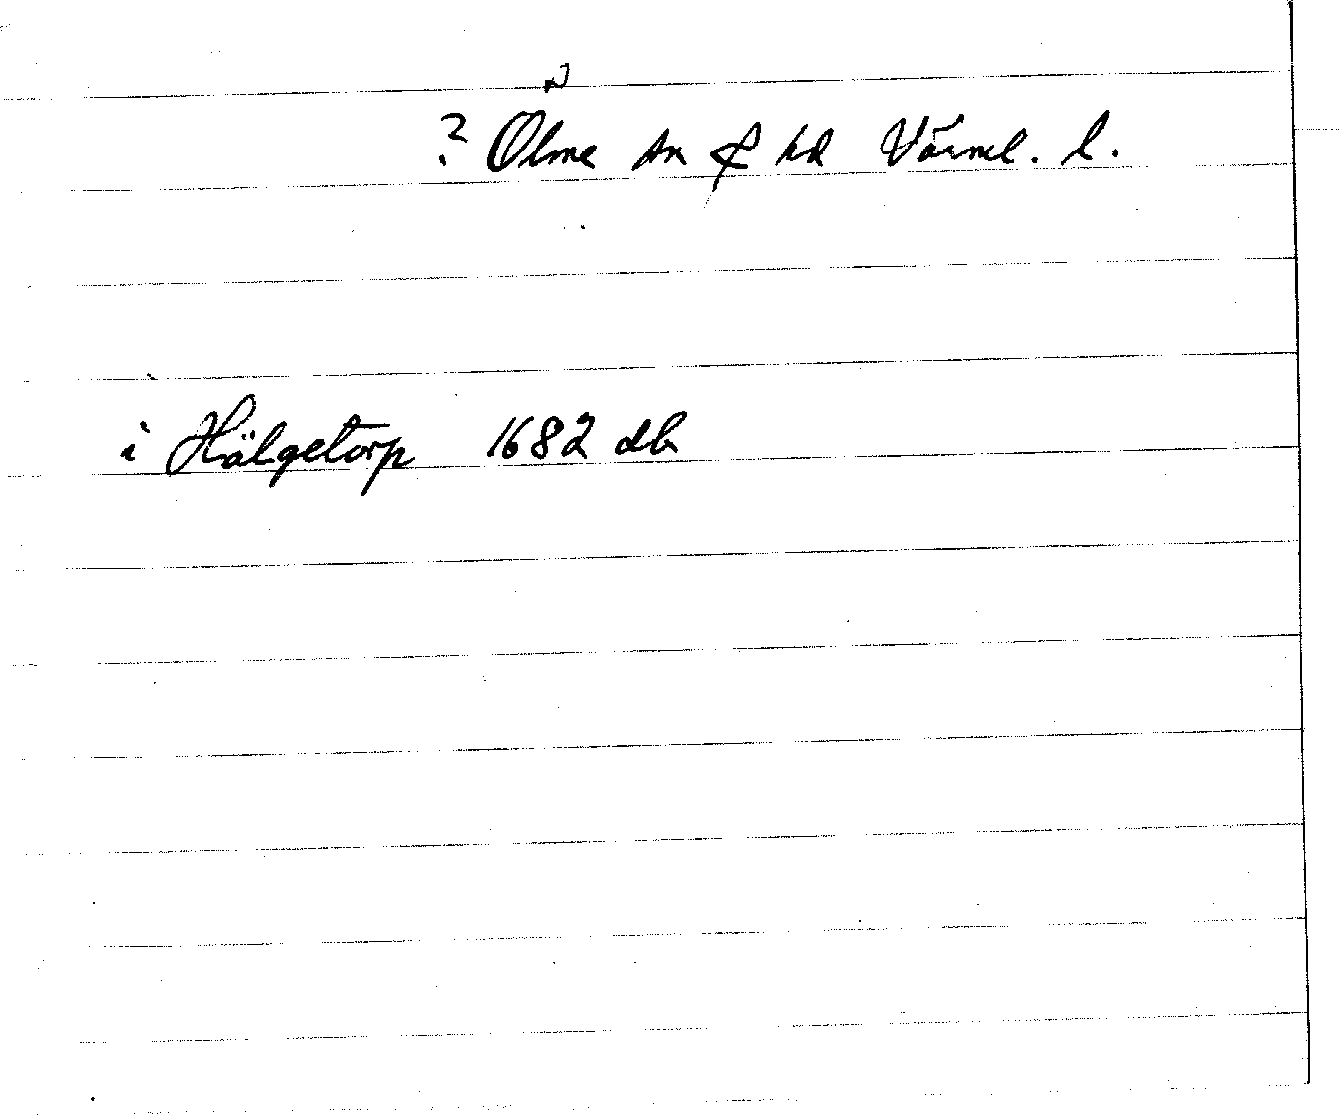 ? Ölme sn & hd Värml. l.
i Hälgetorp 1682 db